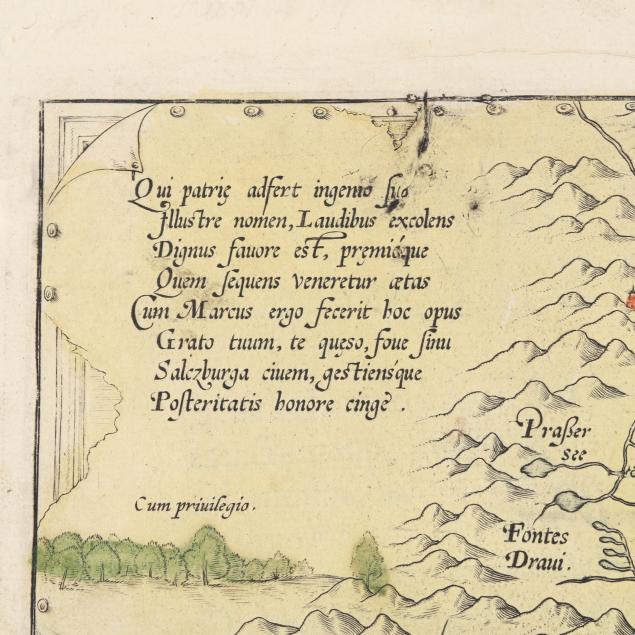 Qui patrię adfert ingenio suo
Illustre nomen, Laudibus excolens
Dignus fauore est, pręmiisque
Quem sequens veneretur ætas
Cum Marcus ergo fecerit hoc opus
Grato tuum, te quęso, foue sinu
Salczburga ciuem, gestiensque
Posteritatis honore cinge.
Cum priuilegio.
Praßer
see
Fontes
Draui.